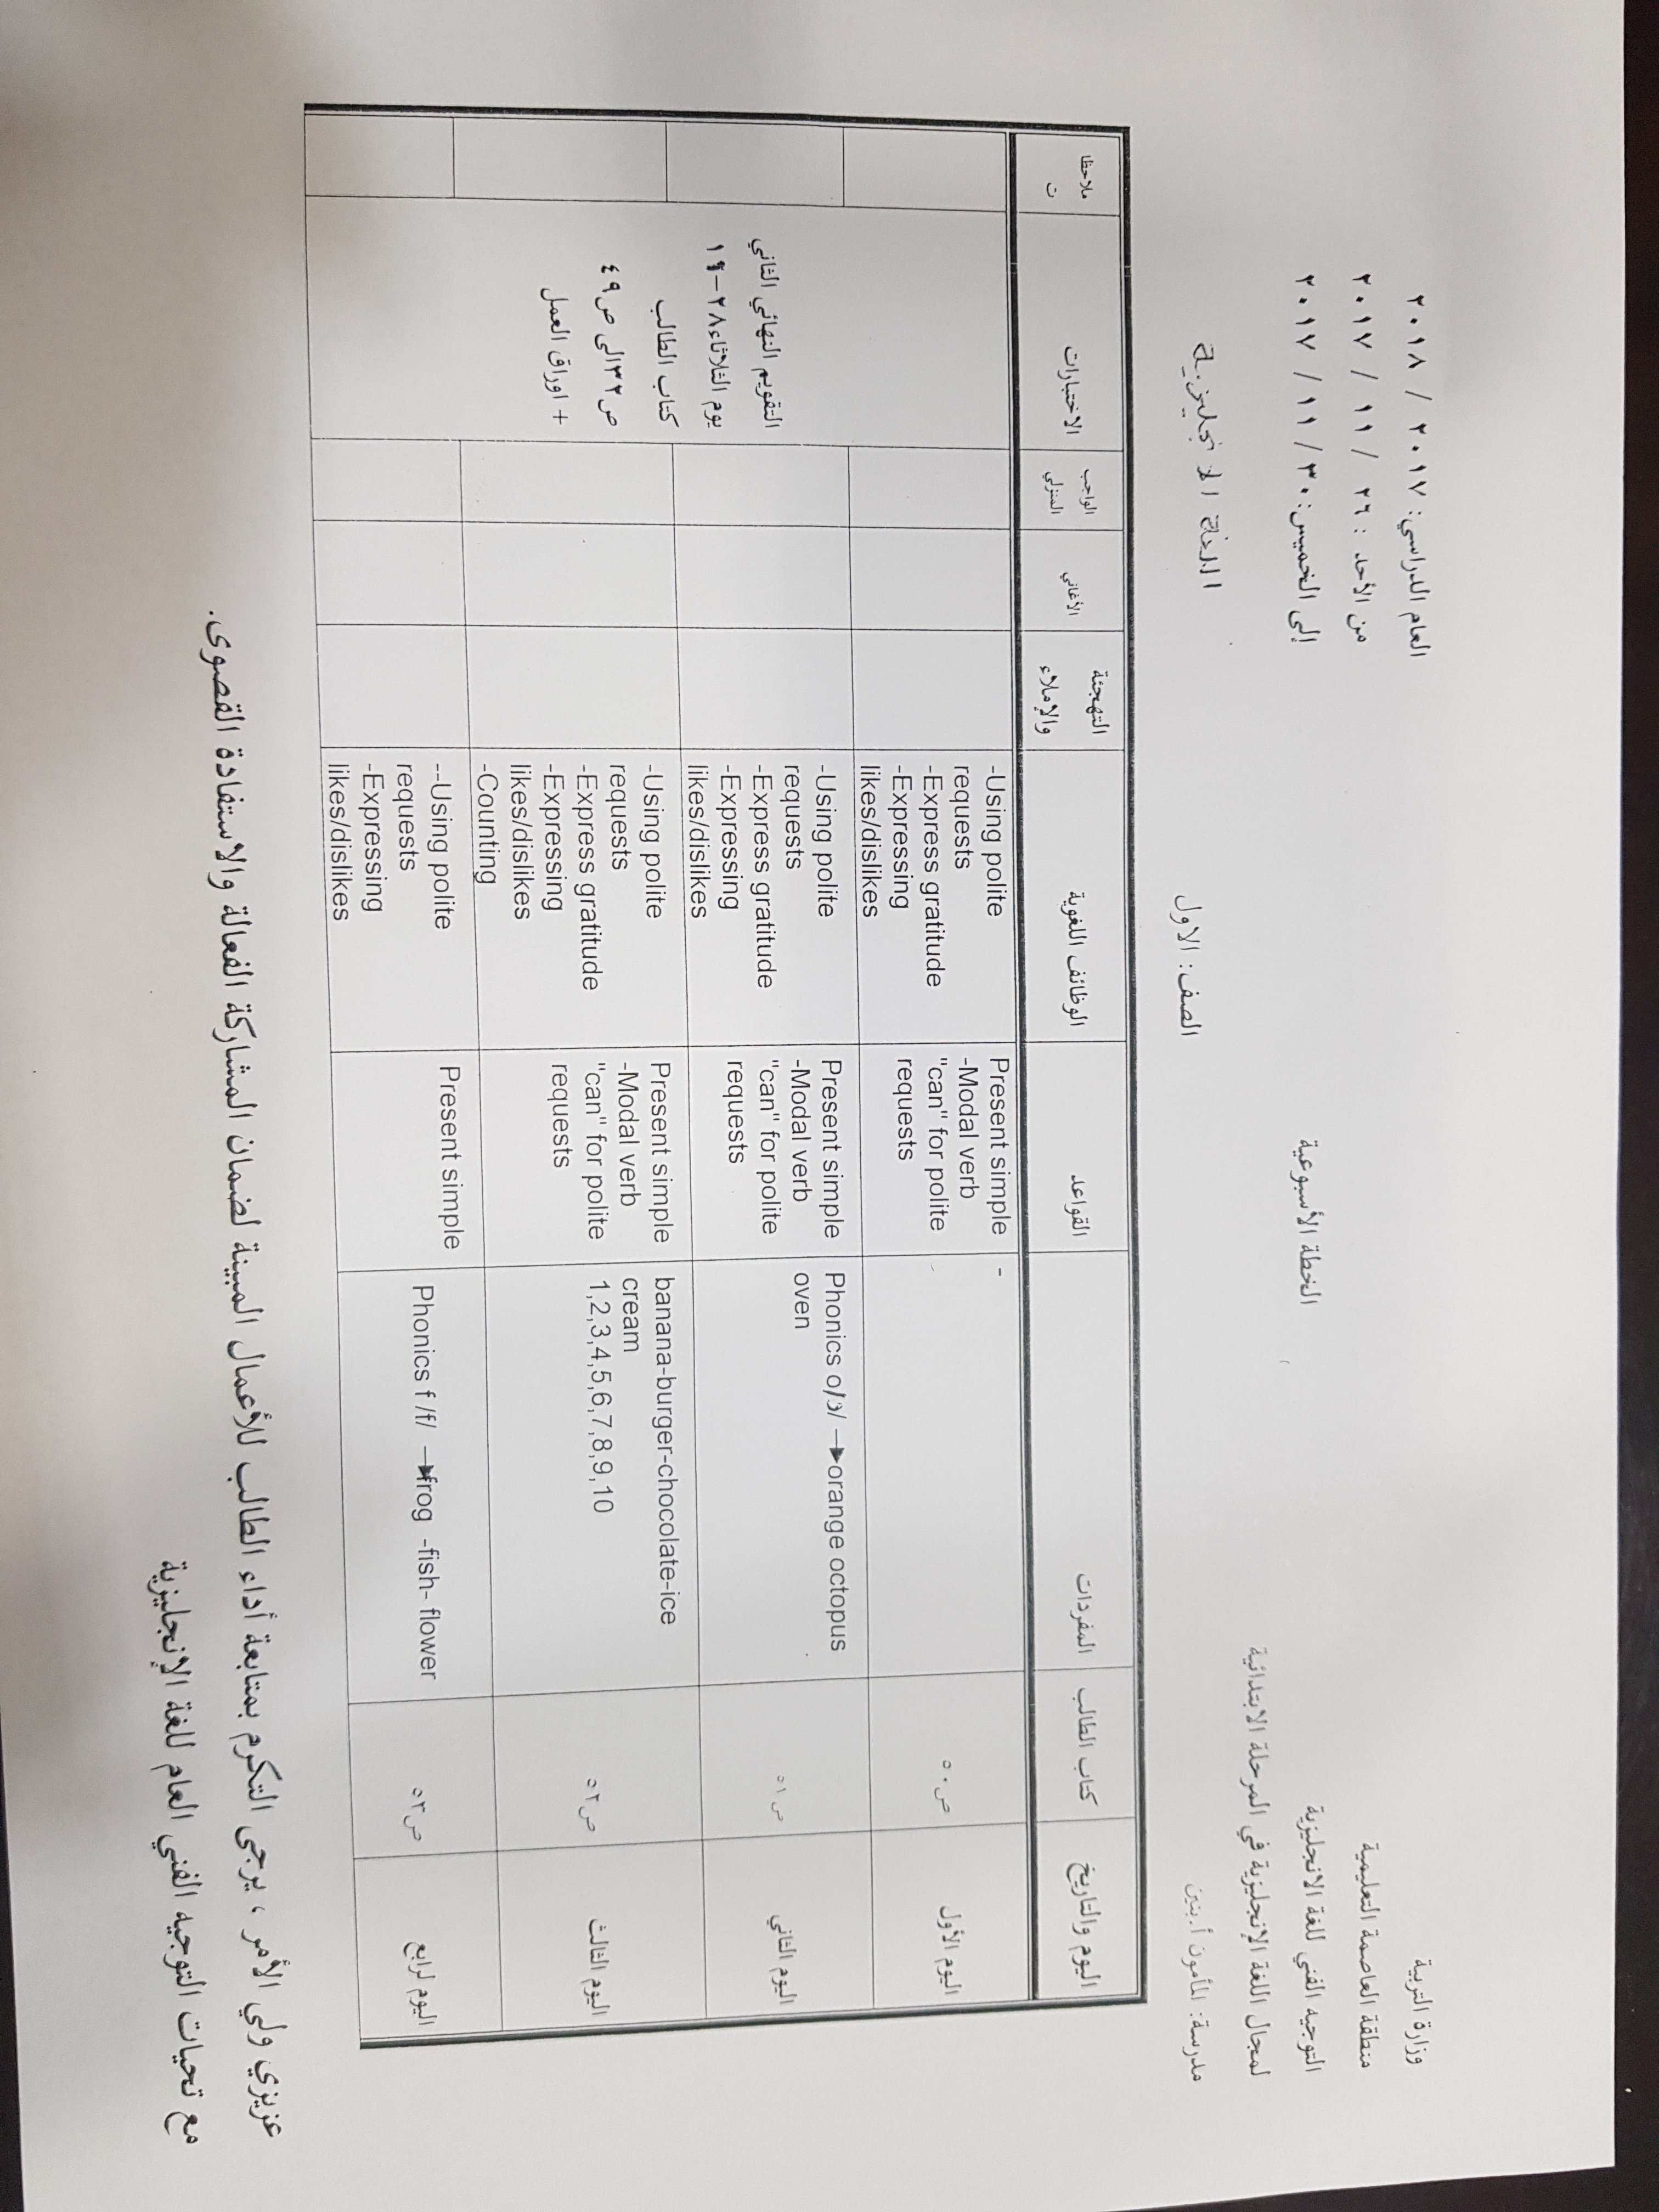 وزارة التربية
منطقة العاصمة التعليمية
التوجيه الفني للغة الانجليزية
لمجال اللغة الإنجليزية في المرحلة الابتدائية
مدرسة: المأمون أ.بنين
الخطة الأسبوعية
الصف: الاول
العام الدراسي: ٢٠١٧ / ٢٠١٨
من الأحد : ٢٦ / ١١ / ٢٠١٧
إلى الخميس: ٣٠ / ١١ / ٢٠١٧
اللغة الانجليزية
اليوم والتاريخ
كتاب الطالب
المفردات
القواعد
الوظائف اللغوية
التهجئة
والإملاء
الأغاني
الواجب
المنزلي
الاختبارات
ملاحظا
ت
اليوم الأول
ص ٥٠
-
Present simple
-Modal verb
"can" for polite
requests
-Using polite
requests
-Express gratitude
-Expressing
likes/dislikes
اليوم الثاني
ص ٥١
Phonics o/ɔ/ →orange octopus
oven
Present simple
-Modal verb
"can" for polite
requests
-Using polite
requests
-Express gratitude
-Expressing
likes/dislikes
اليوم الثالث
ص ٥٢
banana-burger-chocolate-ice
cream
1,2,3,4,5,6,7,8,9,10
Present simple
-Modal verb
"can" for polite
requests
-Using polite
requests
-Express gratitude
-Expressing
likes/dislikes
-Counting
اليوم لرابع
ص ٥٣
Phonics f /f/ →frog -fish- flower
Present simple
--Using polite
requests
-Expressing
likes/dislikes
التقويم النهائي الثاني
يوم الثلاثاء ٢٨-
كتاب الطالب
ص ٣٢الى ص ٤٩
+ اوراق العمل
عزيزي ولي الأمر ، يرجى التكرم بمتابعة أداء الطالب للأعمال المبينة لضمان المشاركة الفعالة والاستفادة القصوى.
مع تحيات التوجيه الفني العام للغة الإنجليزية